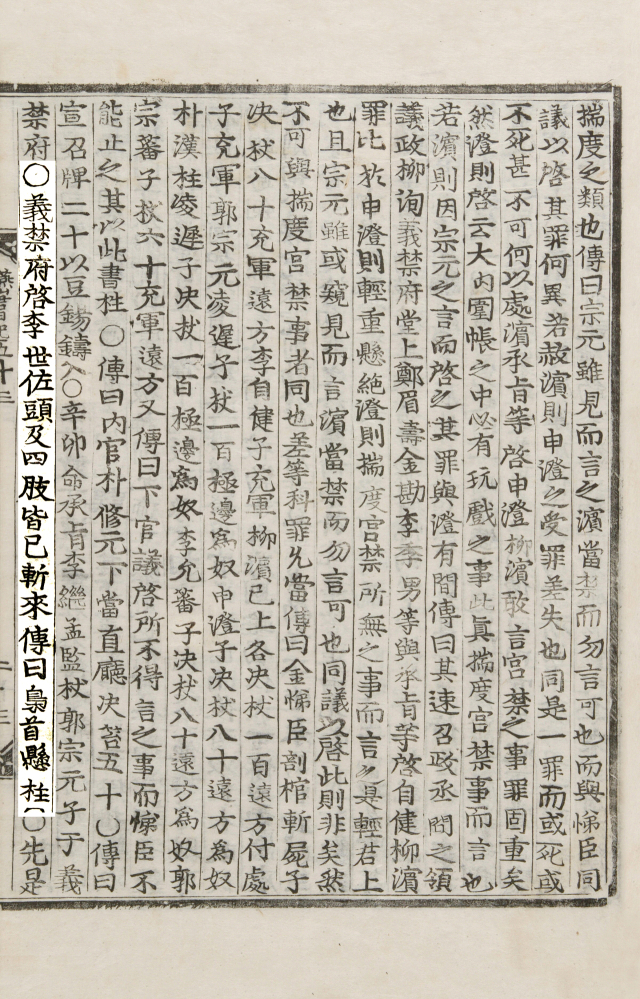 揣度之類也傳曰宗元雖見而言之濱當禁而勿言可也而與悌臣同
議以啓其罪何異若赦濱則申澄之受罪差失也同是一罪而或死或
不死甚不可何以處濱承旨等啓申澄柳濱敢言宮禁之事罪固重矣
然澄則啓云大內圍帳之中必有玩戲之事此眞揣度宮禁事而言也
若濱則因宗元之言而啓之其罪與澄有間傳曰其速召政丞問之領
議政柳洵義禁府堂上鄭眉壽金勘李季男等與承旨等啓自健柳濱
罪比於申澄則輕重懸絶澄則揣度宮禁所無之事而言之是輕若上
也且宗元雖或窺見而言濱當禁而勿言可也同議以啓此則非矣然
不可與揣度宮禁事者同也差等科罪允當傳曰金悌臣剖棺斬屍子
决杖八十充軍遠方李自健子充軍柳濱已上各决杖一百遠方付處
子充軍郭宗元凌遲子杖一百極邊爲奴申澄子决杖八十遠方爲奴
朴漢柱凌遲子决杖一百極邊爲奴李允蕃子决杖八十遠方爲奴郭
宗蕃子杖六十充軍遠方又傳曰下官議啓所不得言之事而悌臣不
能止之其以此書柱〇傳曰內官朴修元下當直廳决笞五十〇傳曰
宣召牌二十以豆錫鑄入〇辛卯命承旨李繼孟監杖郭宗元子于義
禁府〇義禁府啓李世佐頭及四肢皆已斬來傳曰梟首懸柱〇先是